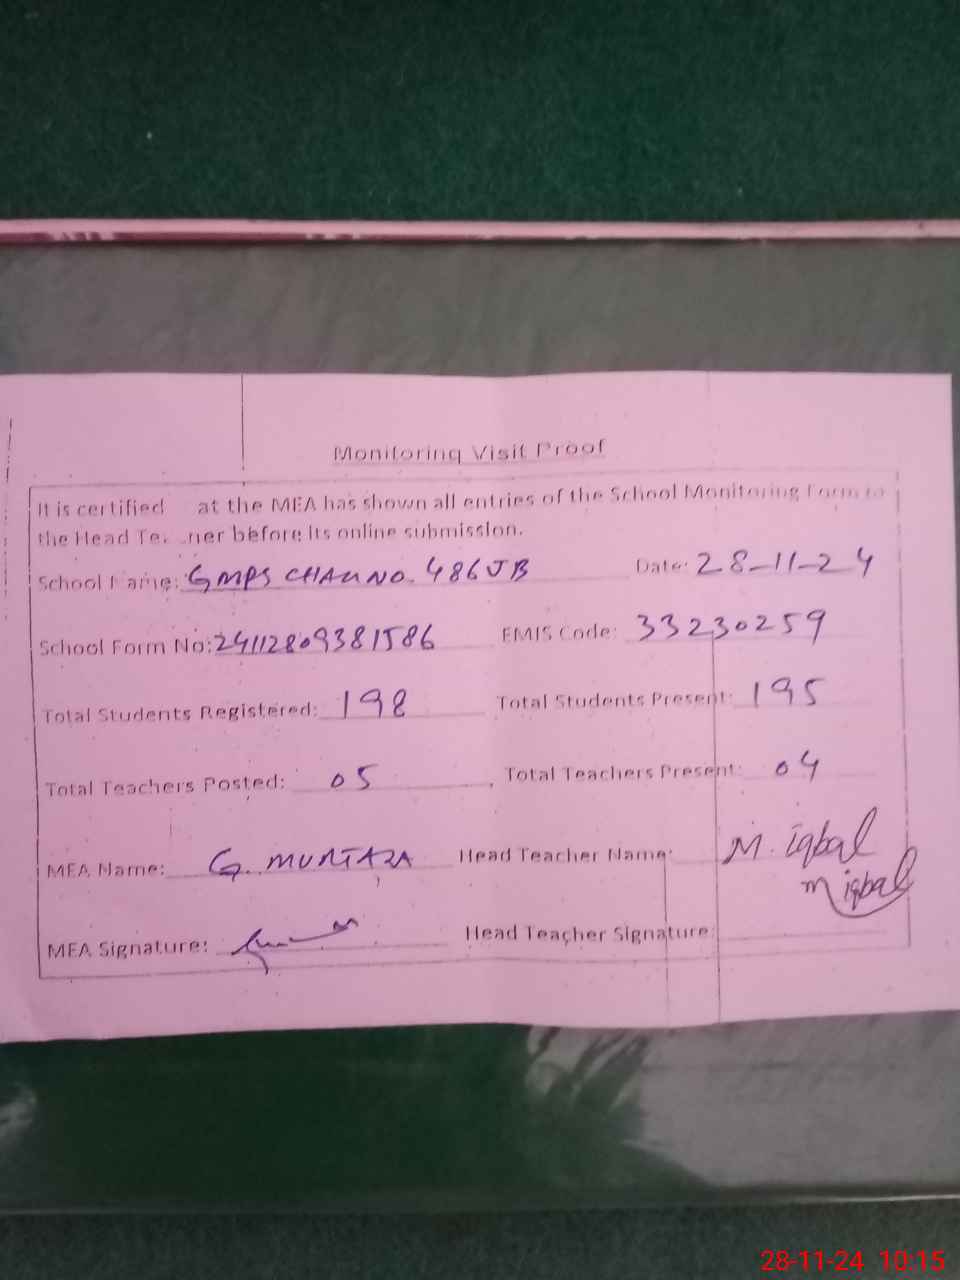 Monitoring Visit Proof
It is certified at the MEA has shown all entries of the School Monitoring Form to
the Head Te. .ner before its online submission.
School Name: GMPS CHAK NO. 486 JB Date: 28-11-24
School Form No: 24112809381586 EMIS Code: 33230259
Total Students Registered: 198 Total Students Present: 195
Total Teachers Posted: 05 Total Teachers Present: 04
MEA Name: G. MURTAZA Head Teacher Name: M. iqbal
m iqbal
MEA Signature: Head Teacher Signature:
28-11-24 10:15